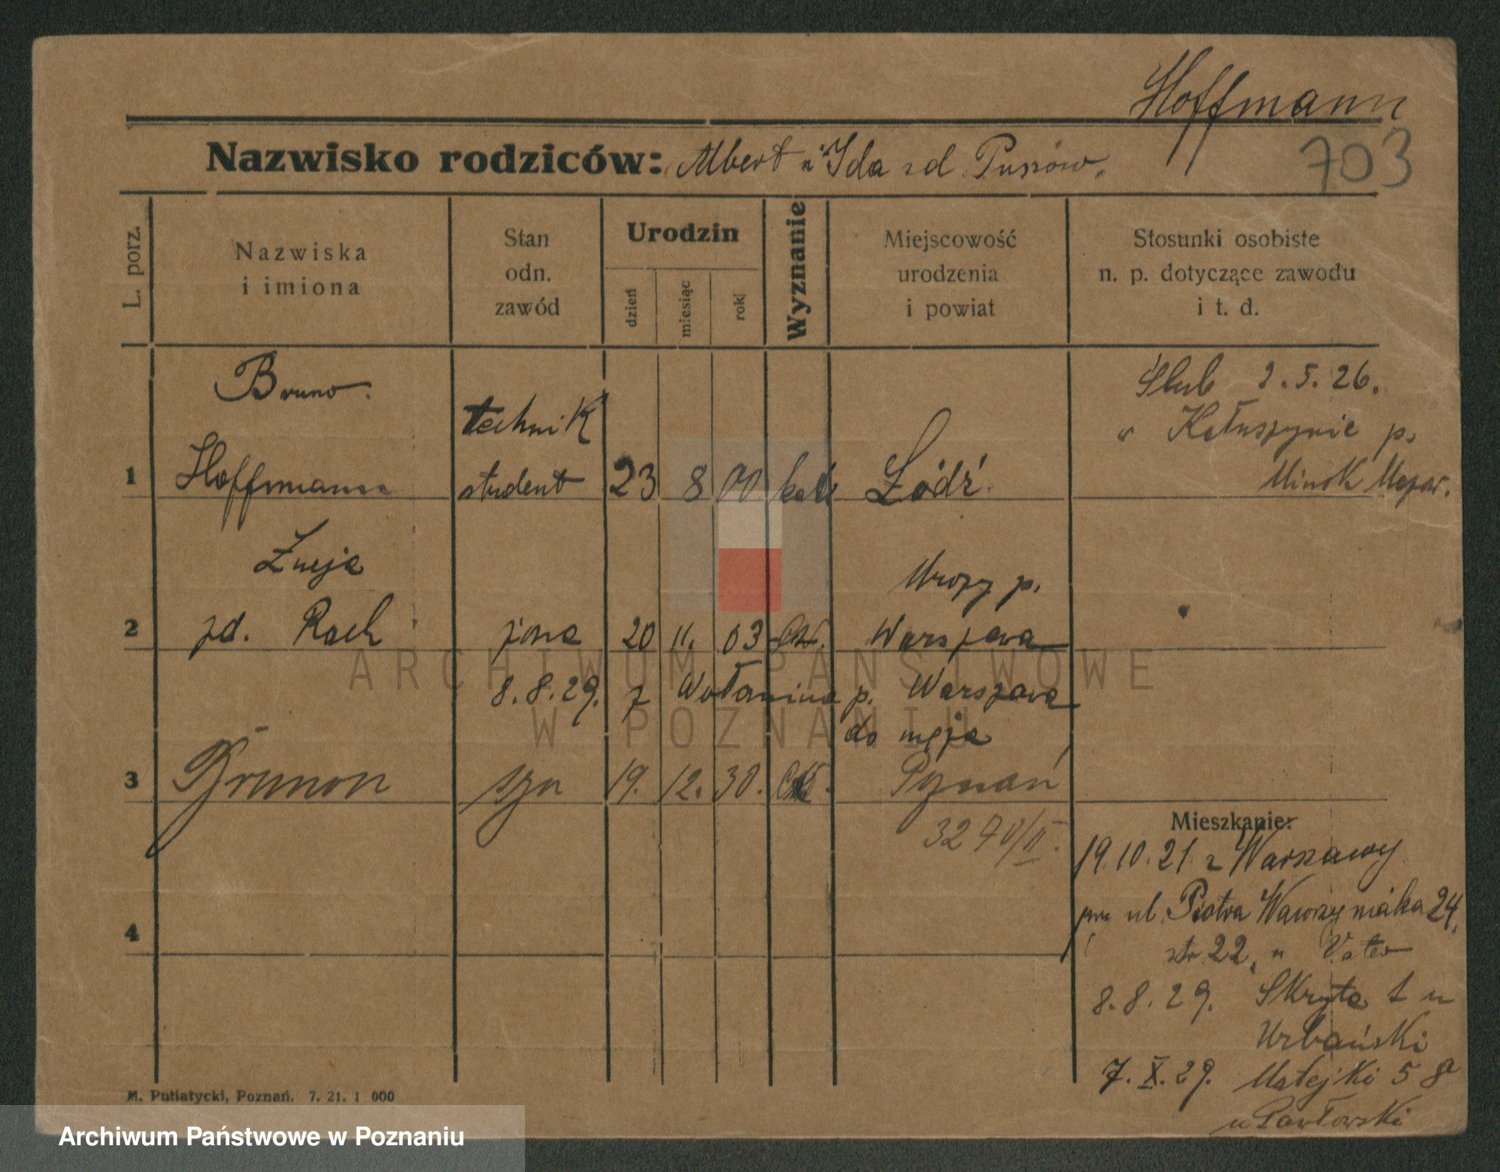 Hoffmann
Nazwisko rodziców: Albert i Ida zd.
703
L. porz.
Nazwiska
i imiona
Stan
odn.
zawód
Urodzin
dzień
miesiąc
rok
Wyznanie
Miejscowość
urodzenia
i powiat
Stosunki osobiste
n. p. dotyczące zawodu
i t. d.
Bruno
technik
1 Hoffmann student 23 8 00 kat Łódź.
Ślub 2.5.26.
w Kałuszynie p.
Mińsk Mazow.
2 zd. Rach żona 20 11. 03 Warszawa
8.8.29. z Wołomina p. Warszawa
do męża
3 Brunon syn 19. 12. 30. Poznań
3270/II.
4
Mieszkanie:
19.10.21 z Warszawy
ul. Piotra Wawrzyniaka 24.
str 22, u Vater
8.8.29. Skryta 1 u
Urbański
7.X.29. Matejki 58
u Pawłowski
M. Putiatycki, Poznań. 7. 21. 1 000
ARCHIWUM PAŃSTWOWE
W POZNANIU
Archiwum Państwowe w Poznaniu